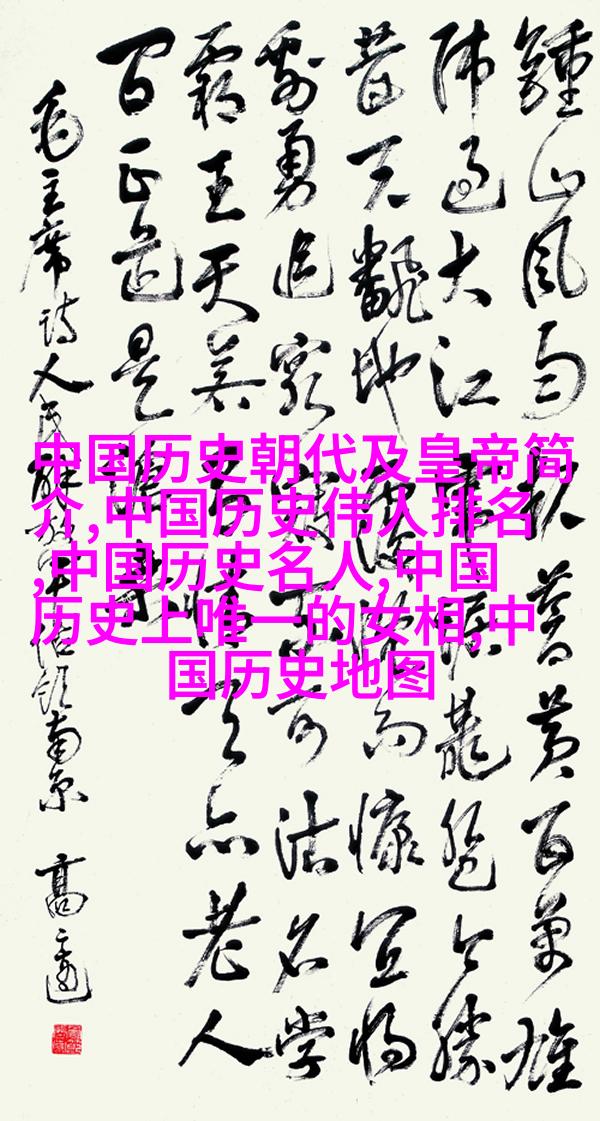 中国历史朝代及皇帝简
介,中国历史伟人排名
,中国历史名人,中国
历史上唯一的女相,中
国历史地图
鍾山風雨起蒼黃百萬雄
師過大江虎踞龍盤今勝
昔天翻地覆慨而慷宜將
剩勇追窮寇不可沽名學
霸王天若有情天亦老人
间正道是滄桑
毛主席詩人民解放軍佔領南京 高